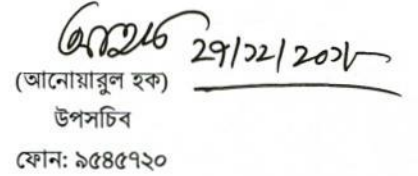 ২৭/১২/২০১৮
(আনোয়ারুল হক)
উপসচিব
ফোন: ৯৫৪৫৭২০